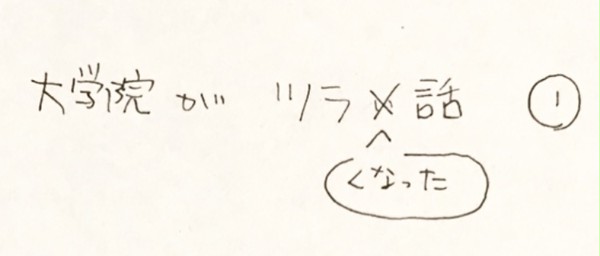 大学院が ツラ 話 ①
くなった